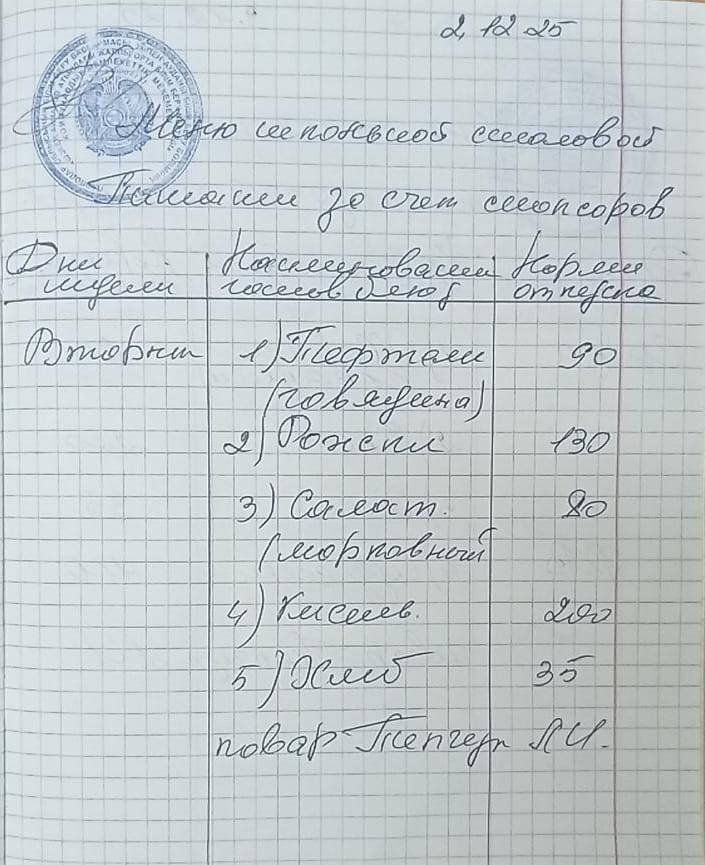 2, 12 25
Меню школьной столовой
Питании за счет спонсоров
Дни недели
Наименовании готов блюд
Нормы отпуска
Вторник 1) Тефтели 90
(говядина)
2) Рожски 130
3) Салат. 80
(морковный
4) Кисель. 200
5) Хлеб 35
повар Л.И.